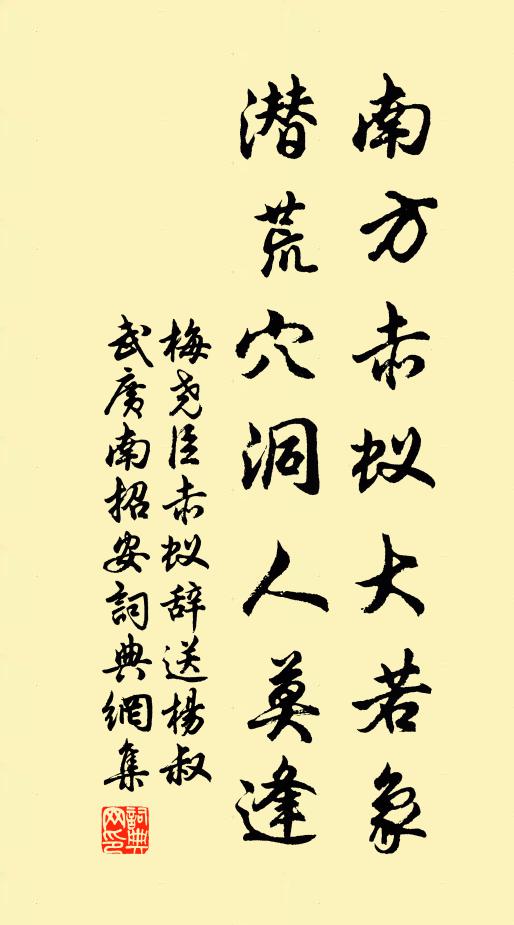 南方赤蚁大若象
潜荒穴洞人莫逢
梅尧臣赤蚁辞送杨叔
武廣南招安詞典網集
詞典
网印